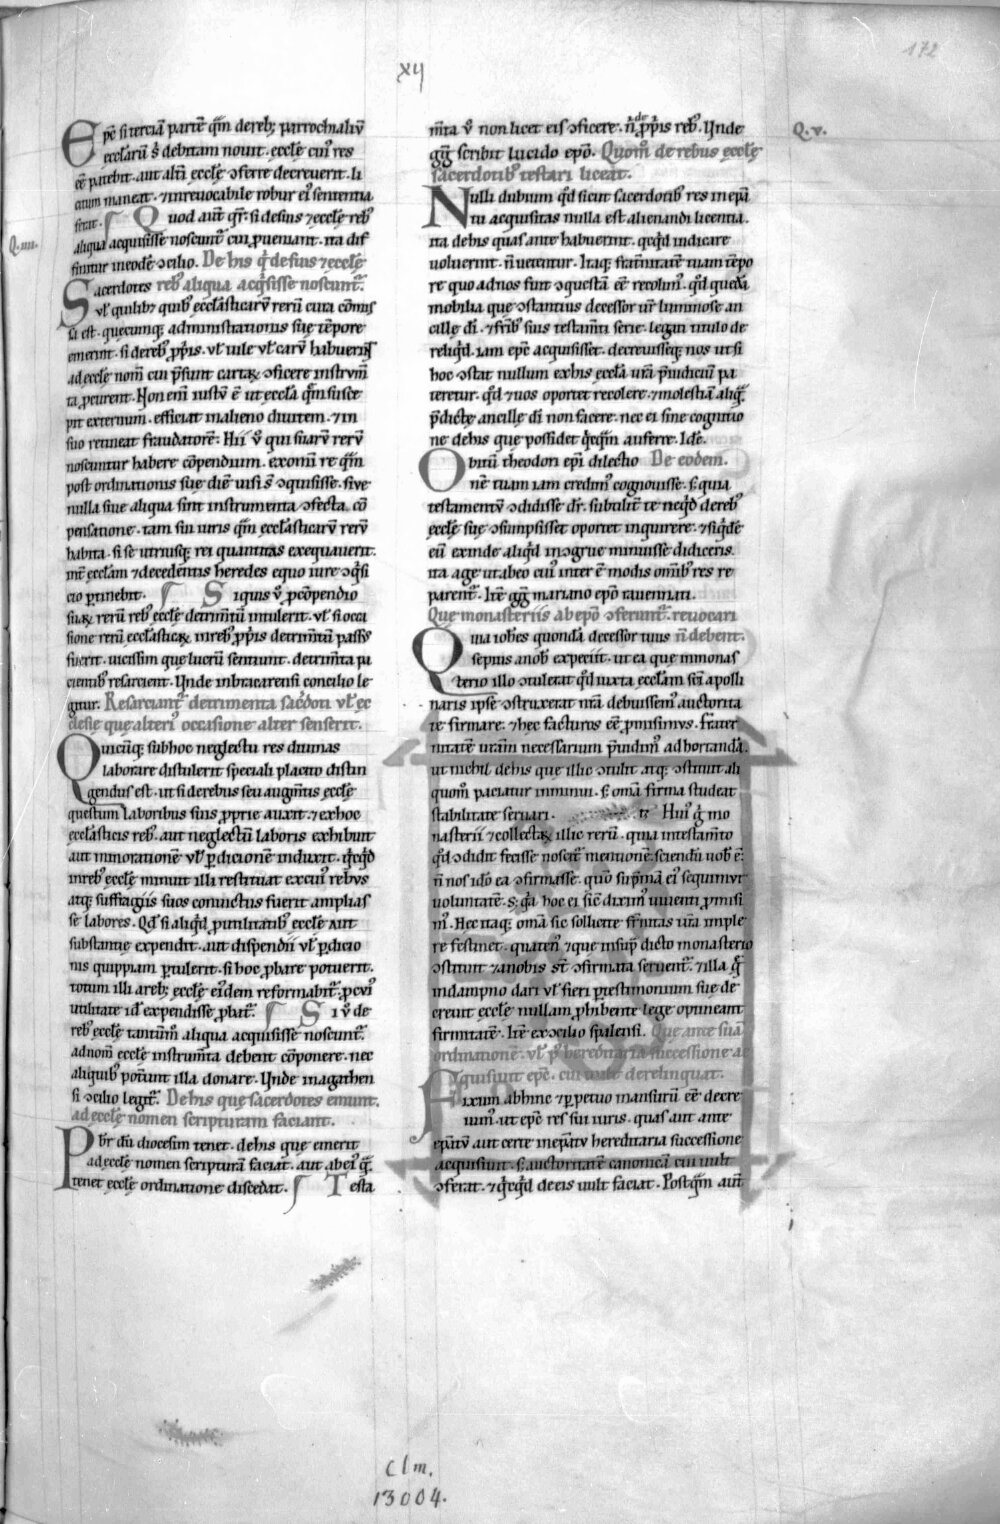 172
xij
Epc si terciā partē q̄m de reb; parrochialiū
ecclarū s̄ debitam nouit. eccłe cui' res
ēē patebit. aut aliī eccłe ɔferre decreuerit. li
citum maneat. ⁊ inreuocabile robur ei' sententia
ferat. Quod aut̄ qr̄. si de suis ⁊ eccłe reb'
aliqua acquisisse noscunt̄ cui ꝓueniant. ita dif
Q. iiii.
finitur in eodē ɔcilio. De his qi de suis ⁊ eccłe
Sacerdotes reb' aliqua acq̇sisse noscunt̄.
vł quilib; quib' eccłasticarū rerū cura cōmis
sa est. quecumq; administrationis sue tēpore
emerint. si de reb' ꝓpis. vł uile vł carū habuerīt
ad eccłe nom̄ cui p̄sunt cartaꝝ ɔficere instrum̄
ta ꝓcurent. Non em̄ iustū ē ut eccła q̄m susce
pit externum. efficiat in alieno diuitem. ⁊ in
suo retineat fraudatorē. Hii v̊ qui suarū rerū
noscuntur habere cōpendium. ex omī re q̄m
post ordinationis sue diē uisi s̄ ɔquisisse. siue
nulla siue aliqua sint instrumenta ɔfecta. cō
pensatione. tam sui iuris q̄m eccłasticarū rerū
habita. si se utriusq; rei quantitas exequauerit.
int̄ eccłam ⁊ decedentis heredes equo iure ɔq̇si
cio ꝑtinebit. Siquis v̊ ꝓ cōpendio
suaꝝ rerū reb' eccłe detrim̄tū intulerit. vł si occa
sione rerū eccłasticaꝝ in reb' ꝓpis detrim̄tū passus
fuerit. uicissim que lucrū sentiunt. detrim̄ta pa
cientib' resarcient. Unde in bracarensi concilio le
gitur. Resarciant̄ detrimenta sac̄dotī vł ec
clesie que alteri' occasione alter senserit.
Quicūq; sub hoc neglectu res diuinas
laborare distulerit speciali placito distin
gendus est. ut si de rebus seu augm̄tis eccłe
questum laboribus suis ꝓprie auxit. ⁊ ex hoc
eccłasticis reb'. aut neglectū laboris exhibuit
aut minorationē vł ꝑdicionē induxit. q̇cq̇d
in reb' eccłe minuit illi restituat ex cui' rebus
atq; suffragiis suos conuictus fuerit amplias
se labores. Qd̄ si aliq̇d ꝓ utilitatib' eccłe aut
substantie expendit. aut dispendii vł ꝑdicio
nis quippiam ꝑtulerit. si hoc ꝓbare potuerit.
totum illi a reb; eccłe ei'dem reformabit̄. ꝓ cui'
utilitate id' expendisse ꝓbat̄. Si v̊ de
reb' eccłe tantūm aliqua acquisisse noscunt̄.
ad nom̄ eccłe instrum̄ta debent cōponere. nec
aliquib' poterunt illa donare. Unde in agathen
si ɔcilio legit̄. De his que sacerdotes emunt.
ad eccłe nomen scripturam faciant.
Pbr dū diocesim tenet. de his que emerit
ad eccłe nomen scripturā faciat. aut ab ei' q̄
tenet eccłe ordinatione discedat. Testa
m̄ta v̊ non licet eis ɔficere. n̄ de ꝓpis reb'. Unde
Q. v.
gg̅ scribit lucido ep̄o. Quom̊ de rebus eccłe
sacerdotib' testari liceat.
Nulli dubium qd̄ sicut sacerdotib' res in ep̄a
tu acquisitas nulla est alienandi licentia.
ita de his quas ante habuerint. q̇cq̇d iudicare
uoluerint. n̄ uetentur. Itaq; frat̄nitatē tuam tēpo
re quo ad nos fuit ɔquestā ēē recolim'. qd̄ quedā
mobilia que ɔstantius decessor ur̄ luminose an
cille di. ⁊ frib' suis testam̄ti serie. legati titulo de
reliqd̄. iam epc̄ acquisisset. decreuisseq; nos ut si
hoc ɔstat nullum ex his eccła ur̄a p̄iudiciū pa
teretur. qd̄ ⁊ uos oportet recolere. ⁊ molestiā aliq̄
p̄dicte ancille di non facere. nec ei sine cognitio
ne de his que possidet q̇cq̄m auferre. Idē.
Obitū theodori ep̄i dilectio De eodem.
nē tuam iam credim' cognouisse. s; quia
testamentū ɔdidisse dr̄. subtilit̄ te neq̇d de reb'
eccłe sue ɔsumpsisset oportet inquirere. ⁊ siq̇dē
eū exinde aliq̇d incongrue minuisse didiceris.
ita age ut ab eo cui' inter ē modis omīb' res re
parent̄. Itē gg̅ mariano ep̄o rauennati.
Que monasteriis ab ep̄o ɔferunt̄. reuocari
Quia iohēs quondā decessor tuus n̄ debent.
sepius a nob' expeciit. ut ea que in monas
terio illo ɔtulerat qd̄ iuxta eccłam sc̄i apolli
naris ip̄se ɔstruxerat nr̄a debuissem' auctorita
te firmare. ⁊ hec facturos ēē ꝓmisimus. frater
nitatē ur̄am necessarium p̄uidim' adhortandā.
ut nichil de his que illic ɔtulit atq; ɔstituit ali
quom̊ paciatur inminui. s; om̄a firma studeat
stabilitate seruari. Hui' q̇ mo
nasterii ⁊ collectaꝝ illic rerū. quia in testam̄to
qd̄ ɔdidit fecisse noscit̄ mentionē. sciendū uob' ē.
n̄ nos ido ea ɔfirmasse. quo supremā ei' sequimur
uoluntatē. s; q̇a hoc ei sic̄ dixim' uiuenti ꝓmisi
m'. Hec itaq; om̄a sic sollicite fr̄nitas ur̄a imple
re festinet. quaten' ⁊ que insup̄ dicto monasterio
ɔstituit ⁊ a nobis st̄ ɔfirmata seruent̄. ⁊ illa q̄
in dampno dari vł fieri ꝑ testimonium sue de
creuit eccłe nullam ꝓhibente lege optineant
firmitatē. Itē ex ɔcilio spalensi. Que ante suā
ordinationē. vł ꝑ hereditaria successione ac
quisiuit epc̄. cui uult derelinquat.
Fixum abhinc ⁊ ꝑpetuo mansurū ēē decre
uim'. ut epc̄ res sui iuris. quas aut ante
ep̄atū aut certe in ep̄atu hereditaria successione
acquisiuit. s; auctoritatē canonicā cui uult
ɔferat. ⁊ q̇cq̇d de eis uult faciat. Postq̄m aut̄
Clm.
13004.